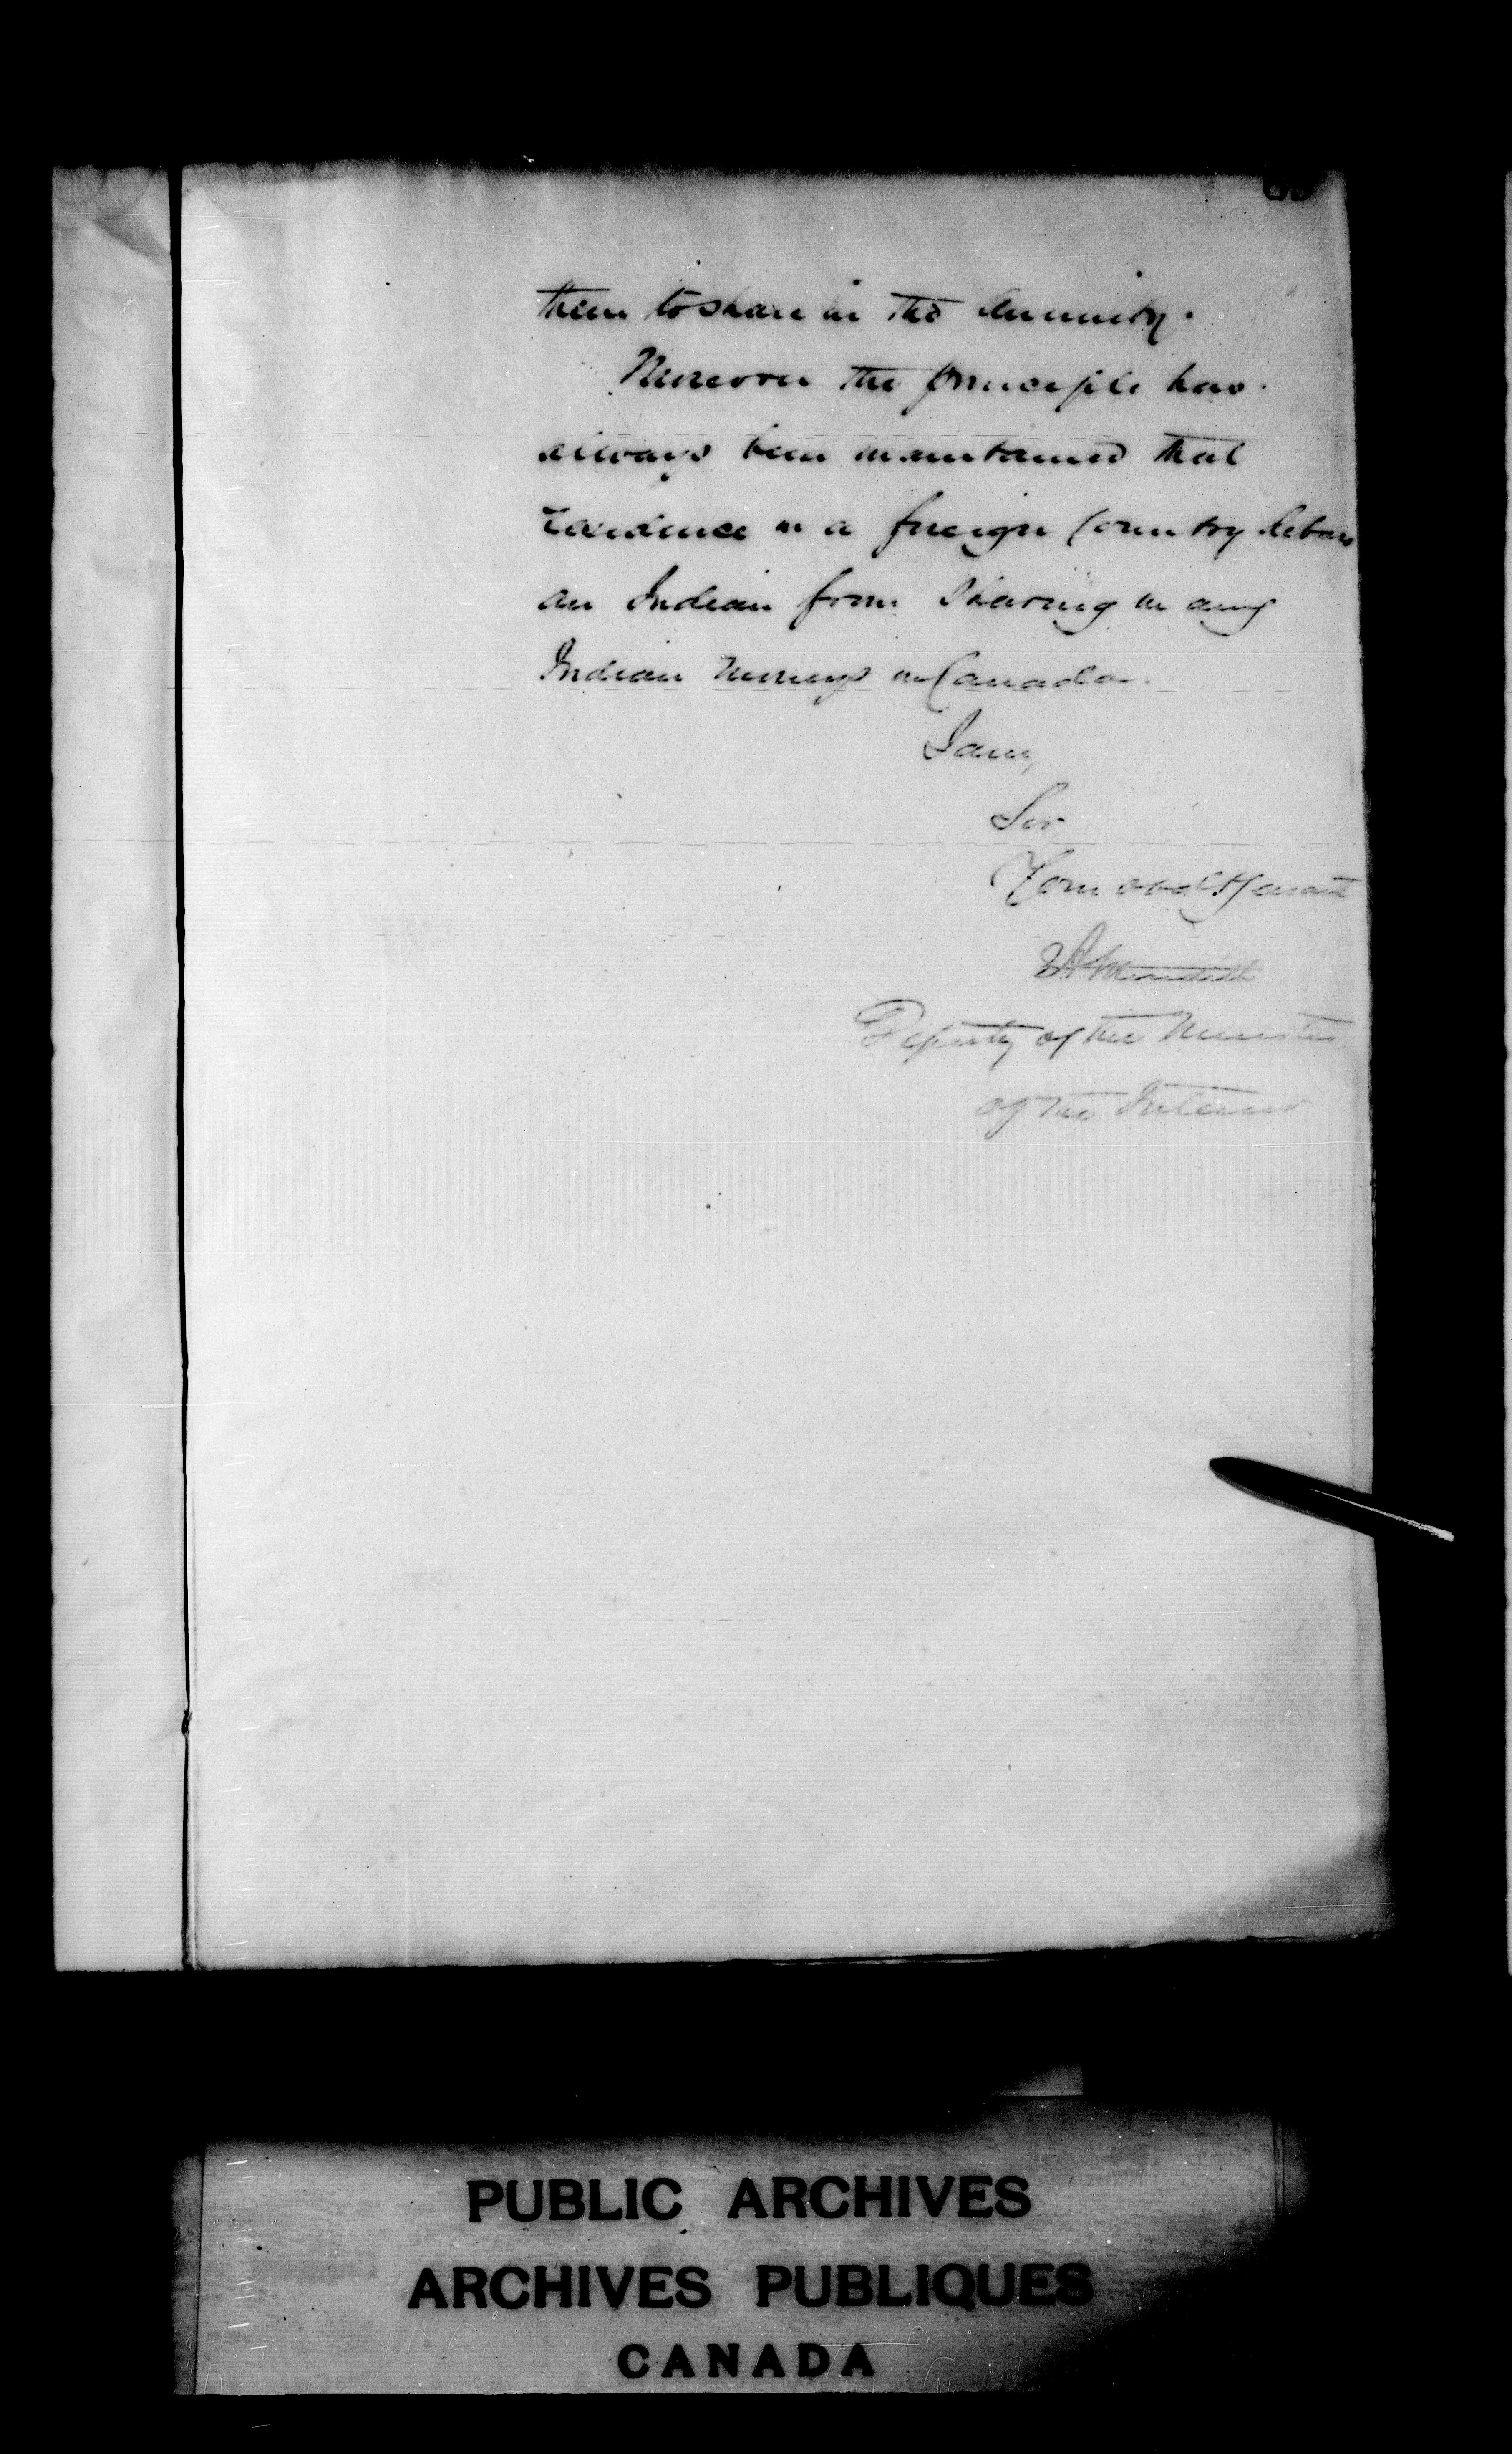 them to share in the Annuity.
Moreover the principle has
always been maintained that
residence in a foreign Country debars
an Indian from sharing in any
Indian moneys in Canada.
I am,
Sir
Your obedt servant
EA Meredith
Deputy of the Minister
of the Interior
PUBLIC ARCHIVES
ARCHIVES PUBLIQUES
CANADA